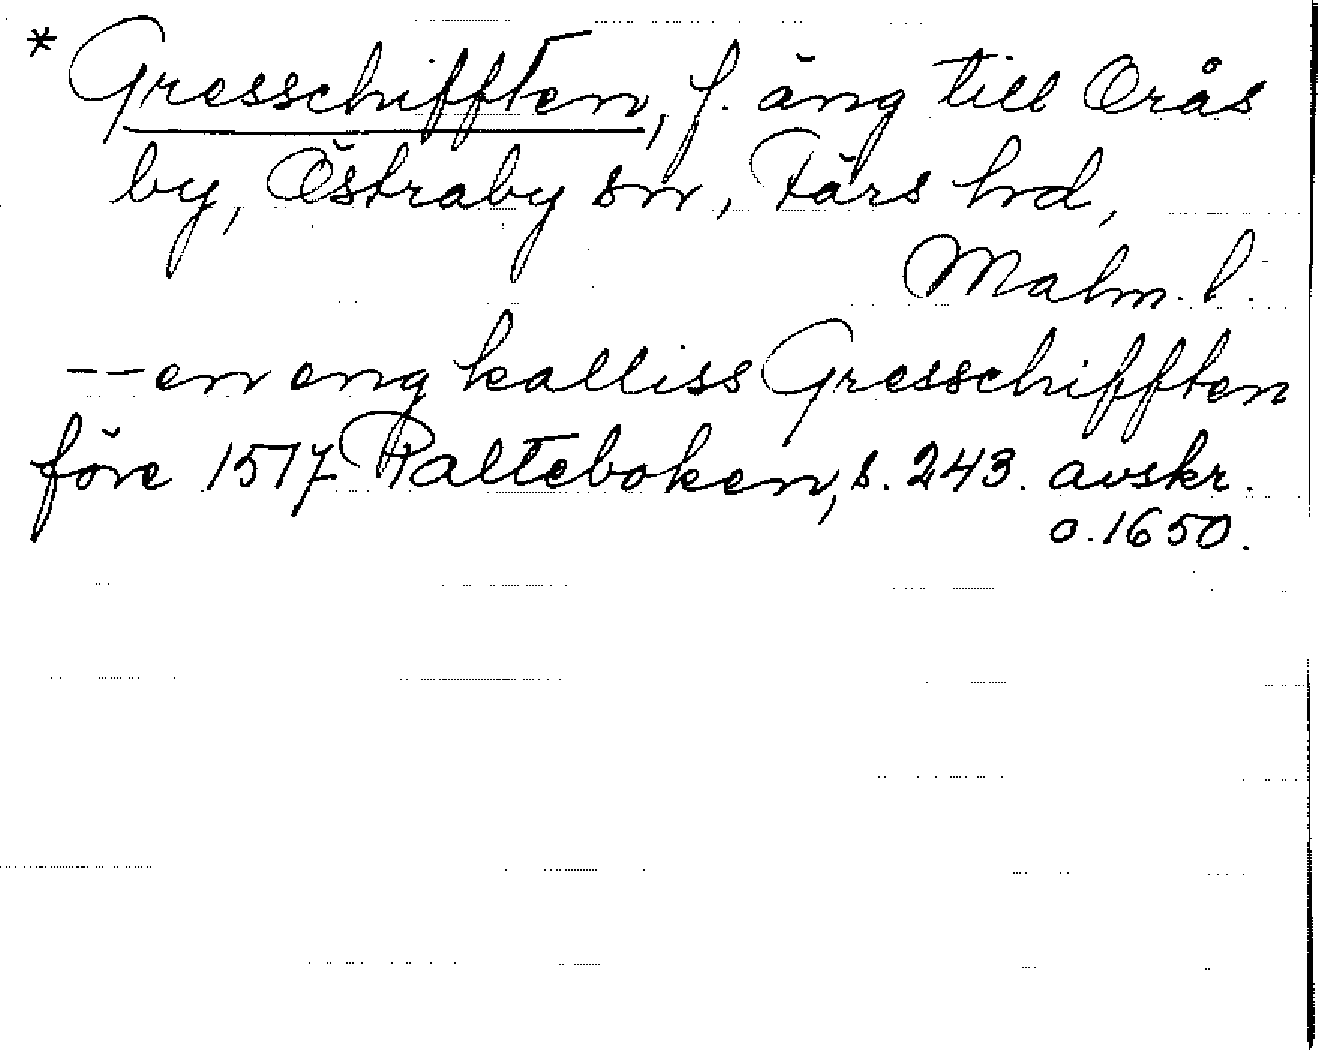 * Gresschifften, f. äng till Orås
by, Östraby sn, Färs hd,
Malm. l.
-- en eng kalliss Gresschifften
före 1517 Palteboken, s. 243. avskr.
o. 1650.